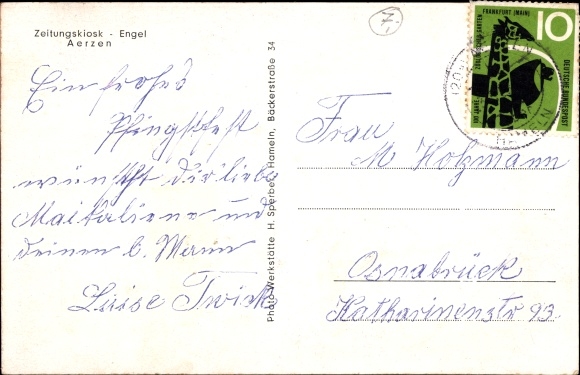 Zeitungskiosk - Engel
Aerzen
7.
Ein frohes
Pfingstfest
wünscht dir liebe
und
deinen b. Mann
Luise
Photo-Werkstätte H. Sperber, Hameln, Bäckerstraße 34
FRANKFURT (MAIN)
ZOOLOGISCHER GARTEN
100 JAHRE
10
DEUTSCHE BUNDESPOST
Frau
M Holzmann
Osnabrück
Katharinenstr 93.